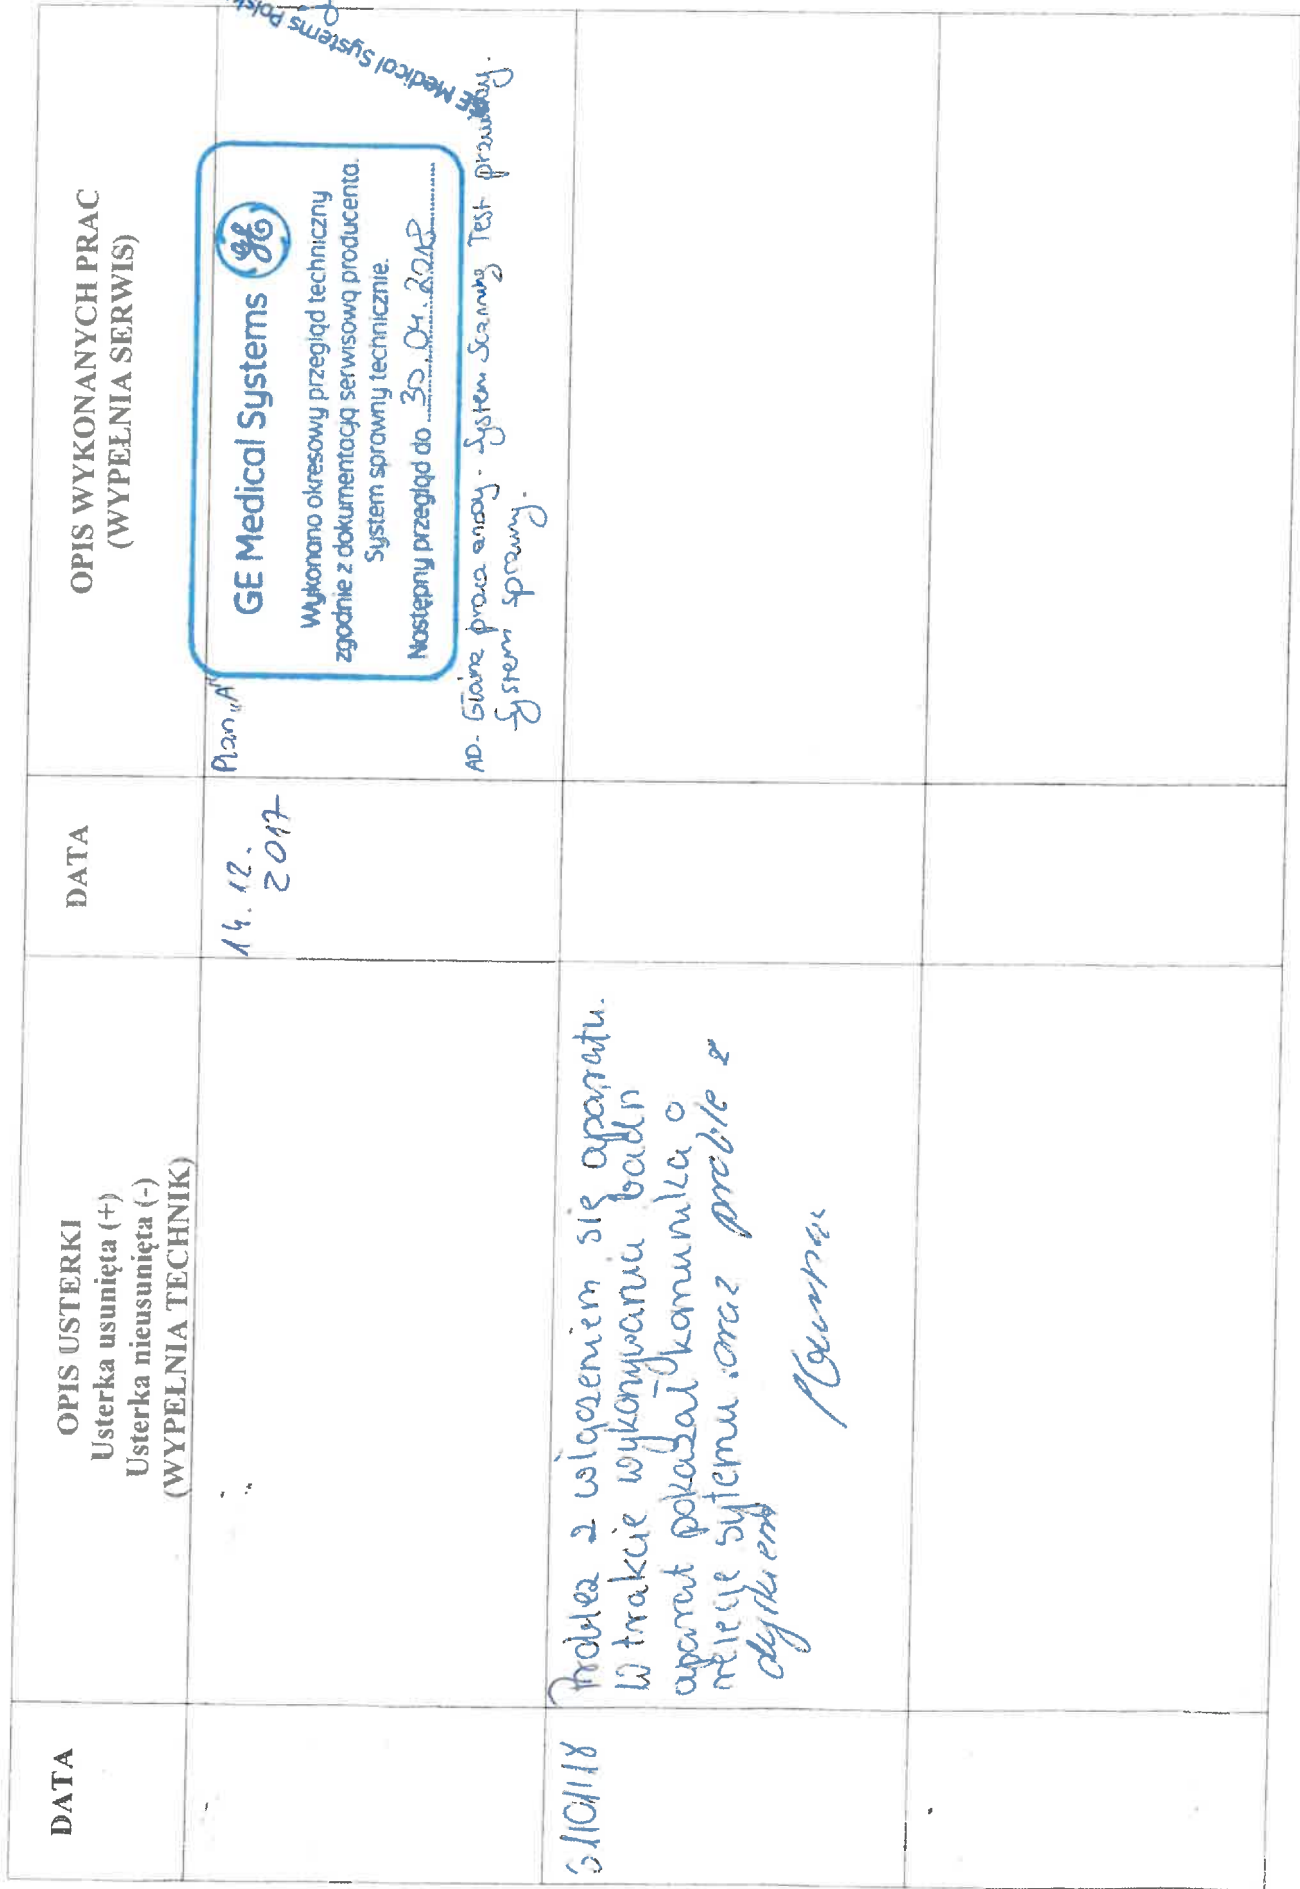 DATA
OPIS USTERKI
Usterka usunięta (+)
Usterka nieusunięta (-)
(WYPEŁNIA TECHNIK)
DATA
OPIS WYKONANYCH PRAC
(WYPEŁNIA SERWIS)
14. 12.
2017
Plan „A"
GE Medical Systems
Wykonano okresowy przegląd techniczny
zgodnie z dokumentacją serwisową producenta.
System sprawny technicznie.
Następny przegląd do 30.04.2018
GE Medical Systems Polska
AD- Głośna praca anody - System Scanning Test prawidłowy.
System sprawny.
31/01/18
z włączeniem się aparatu.
W trakcie wykonywania badn
aparat pokazał komunika o
sytemu oraz proble z
dyskiem